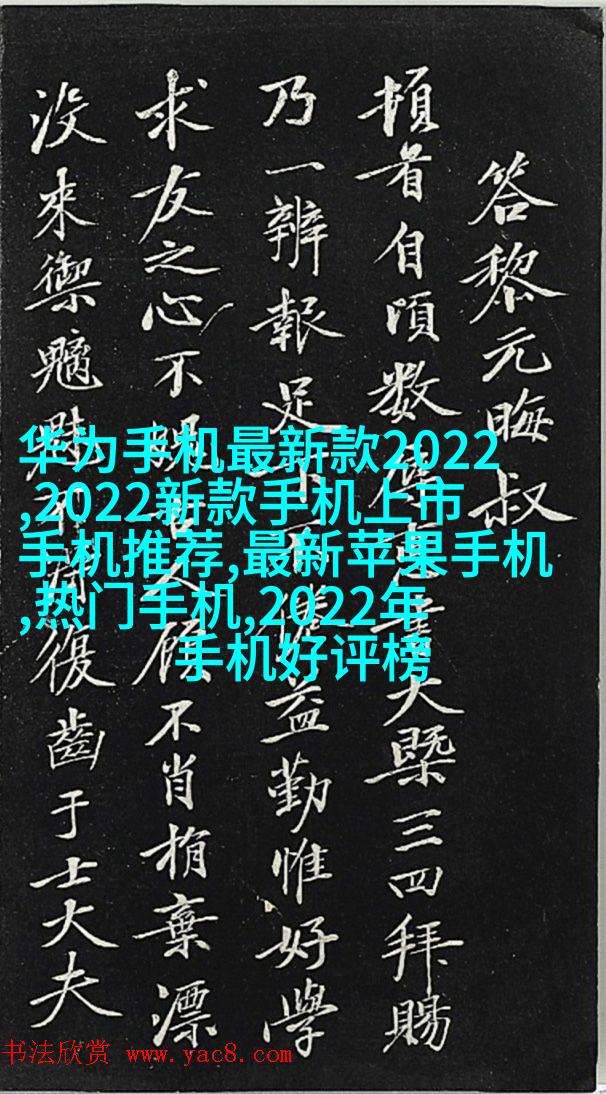 答黎元晦叔
頓首自頃数惠書大槩三四拜賜
乃一辨報足下益勤惟好學
求友之心不顧不肖捐棄漂
没来禦魑魅復齒于士大夫
华为手机最新款2022
,2022新款手机上市
手机推荐,最新苹果手机
,热门手机,2022年
手机好评榜
书法欣赏 www.yac8.com